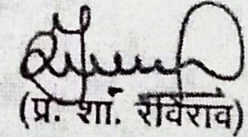 (प्र. शां. रविराव)